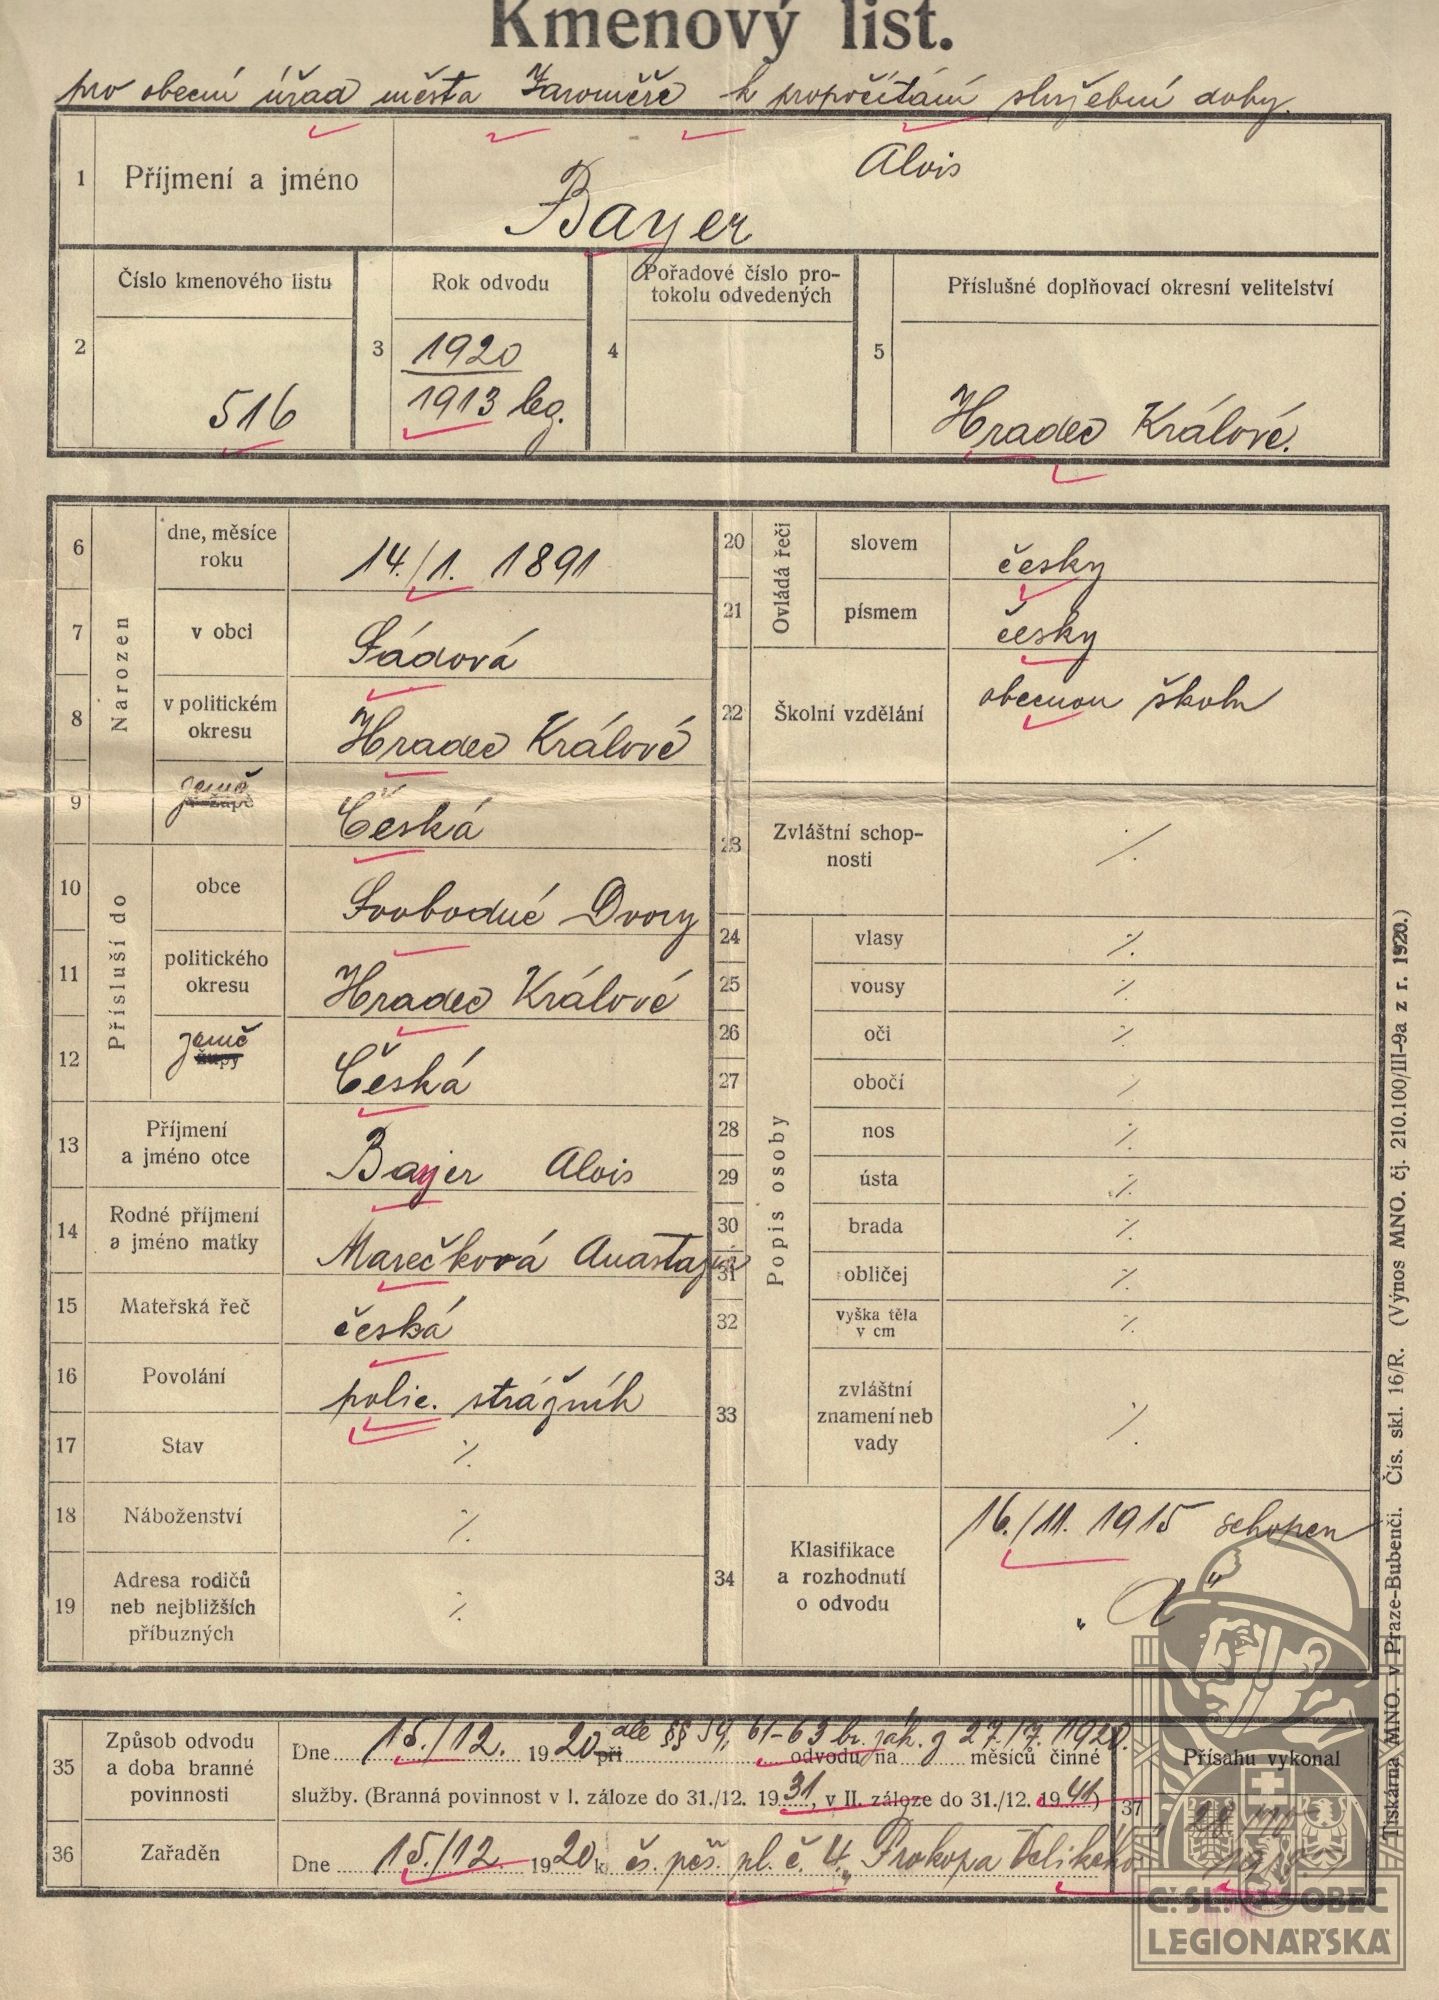 Kmenový list.
pro obecní úřad města Jaroměře k propočítání služební doby.
1 Příjmení a jméno Bayer Alois
2 Číslo kmenového listu 516
3 Rok odvodu 1920 1913 leg.
4 Pořadové číslo pro-
tokolu odvedených
5 Příslušné doplňovací okresní velitelství Hradec Králové.
Narozen
6 dne, měsíce
roku 14./1. 1891
7 v obci Sádová
8 v politickém
okresu Hradec Králové
9 v župě země Česká
Přísluší do
10 obce Svobodné Dvory
11 politického
okresu Hradec Králové
12 župy země Česká
13 Příjmení
a jméno otce Bayer Alois
14 Rodné příjmení
a jméno matky Marečková Anastazie
15 Mateřská řeč česká
16 Povolání polic. strážník
17 Stav ⁒
18 Náboženství ⁒
19 Adresa rodičů
neb nejbližších
příbuzných ⁒
Ovládá řeči
20 slovem česky
21 písmem česky
22 Školní vzdělání obecnou školu
23 Zvláštní schop-
nosti ⁒
Popis osoby
24 vlasy ⁒
25 vousy ⁒
26 oči ⁒
27 obočí ⁒
28 nos ⁒
29 ústa ⁒
30 brada ⁒
31 obličej ⁒
32 vyška těla
v cm ⁒
33 zvláštní
znamení neb
vady ⁒
34 Klasifikace
a rozhodnutí
o odvodu 16./11. 1915 schopen
„A"
35 Způsob odvodu
a doba branné
povinnosti
Dne 15./12. 1920 při dle §§ 59, 61-63 br. zák. z 27./7. 1920. odvodu na měsíců činné
služby. (Branná povinnost v I. záloze do 31./12. 1931, v II. záloze do 31./12. 1941)
36 Zařaděn Dne 15./12. 1920 k čs. pěš. pl. č. 4. „Prokopa Velikého"
37 Přísahu vykonal
Tiskárna MNO. v Praze-Bubenči. Čís. skl. 16/R. (Výnos MNO. čj. 210.100/III-9a z r. 1920.)
Č. SL. OBEC
LEGIONÁŘSKÁ